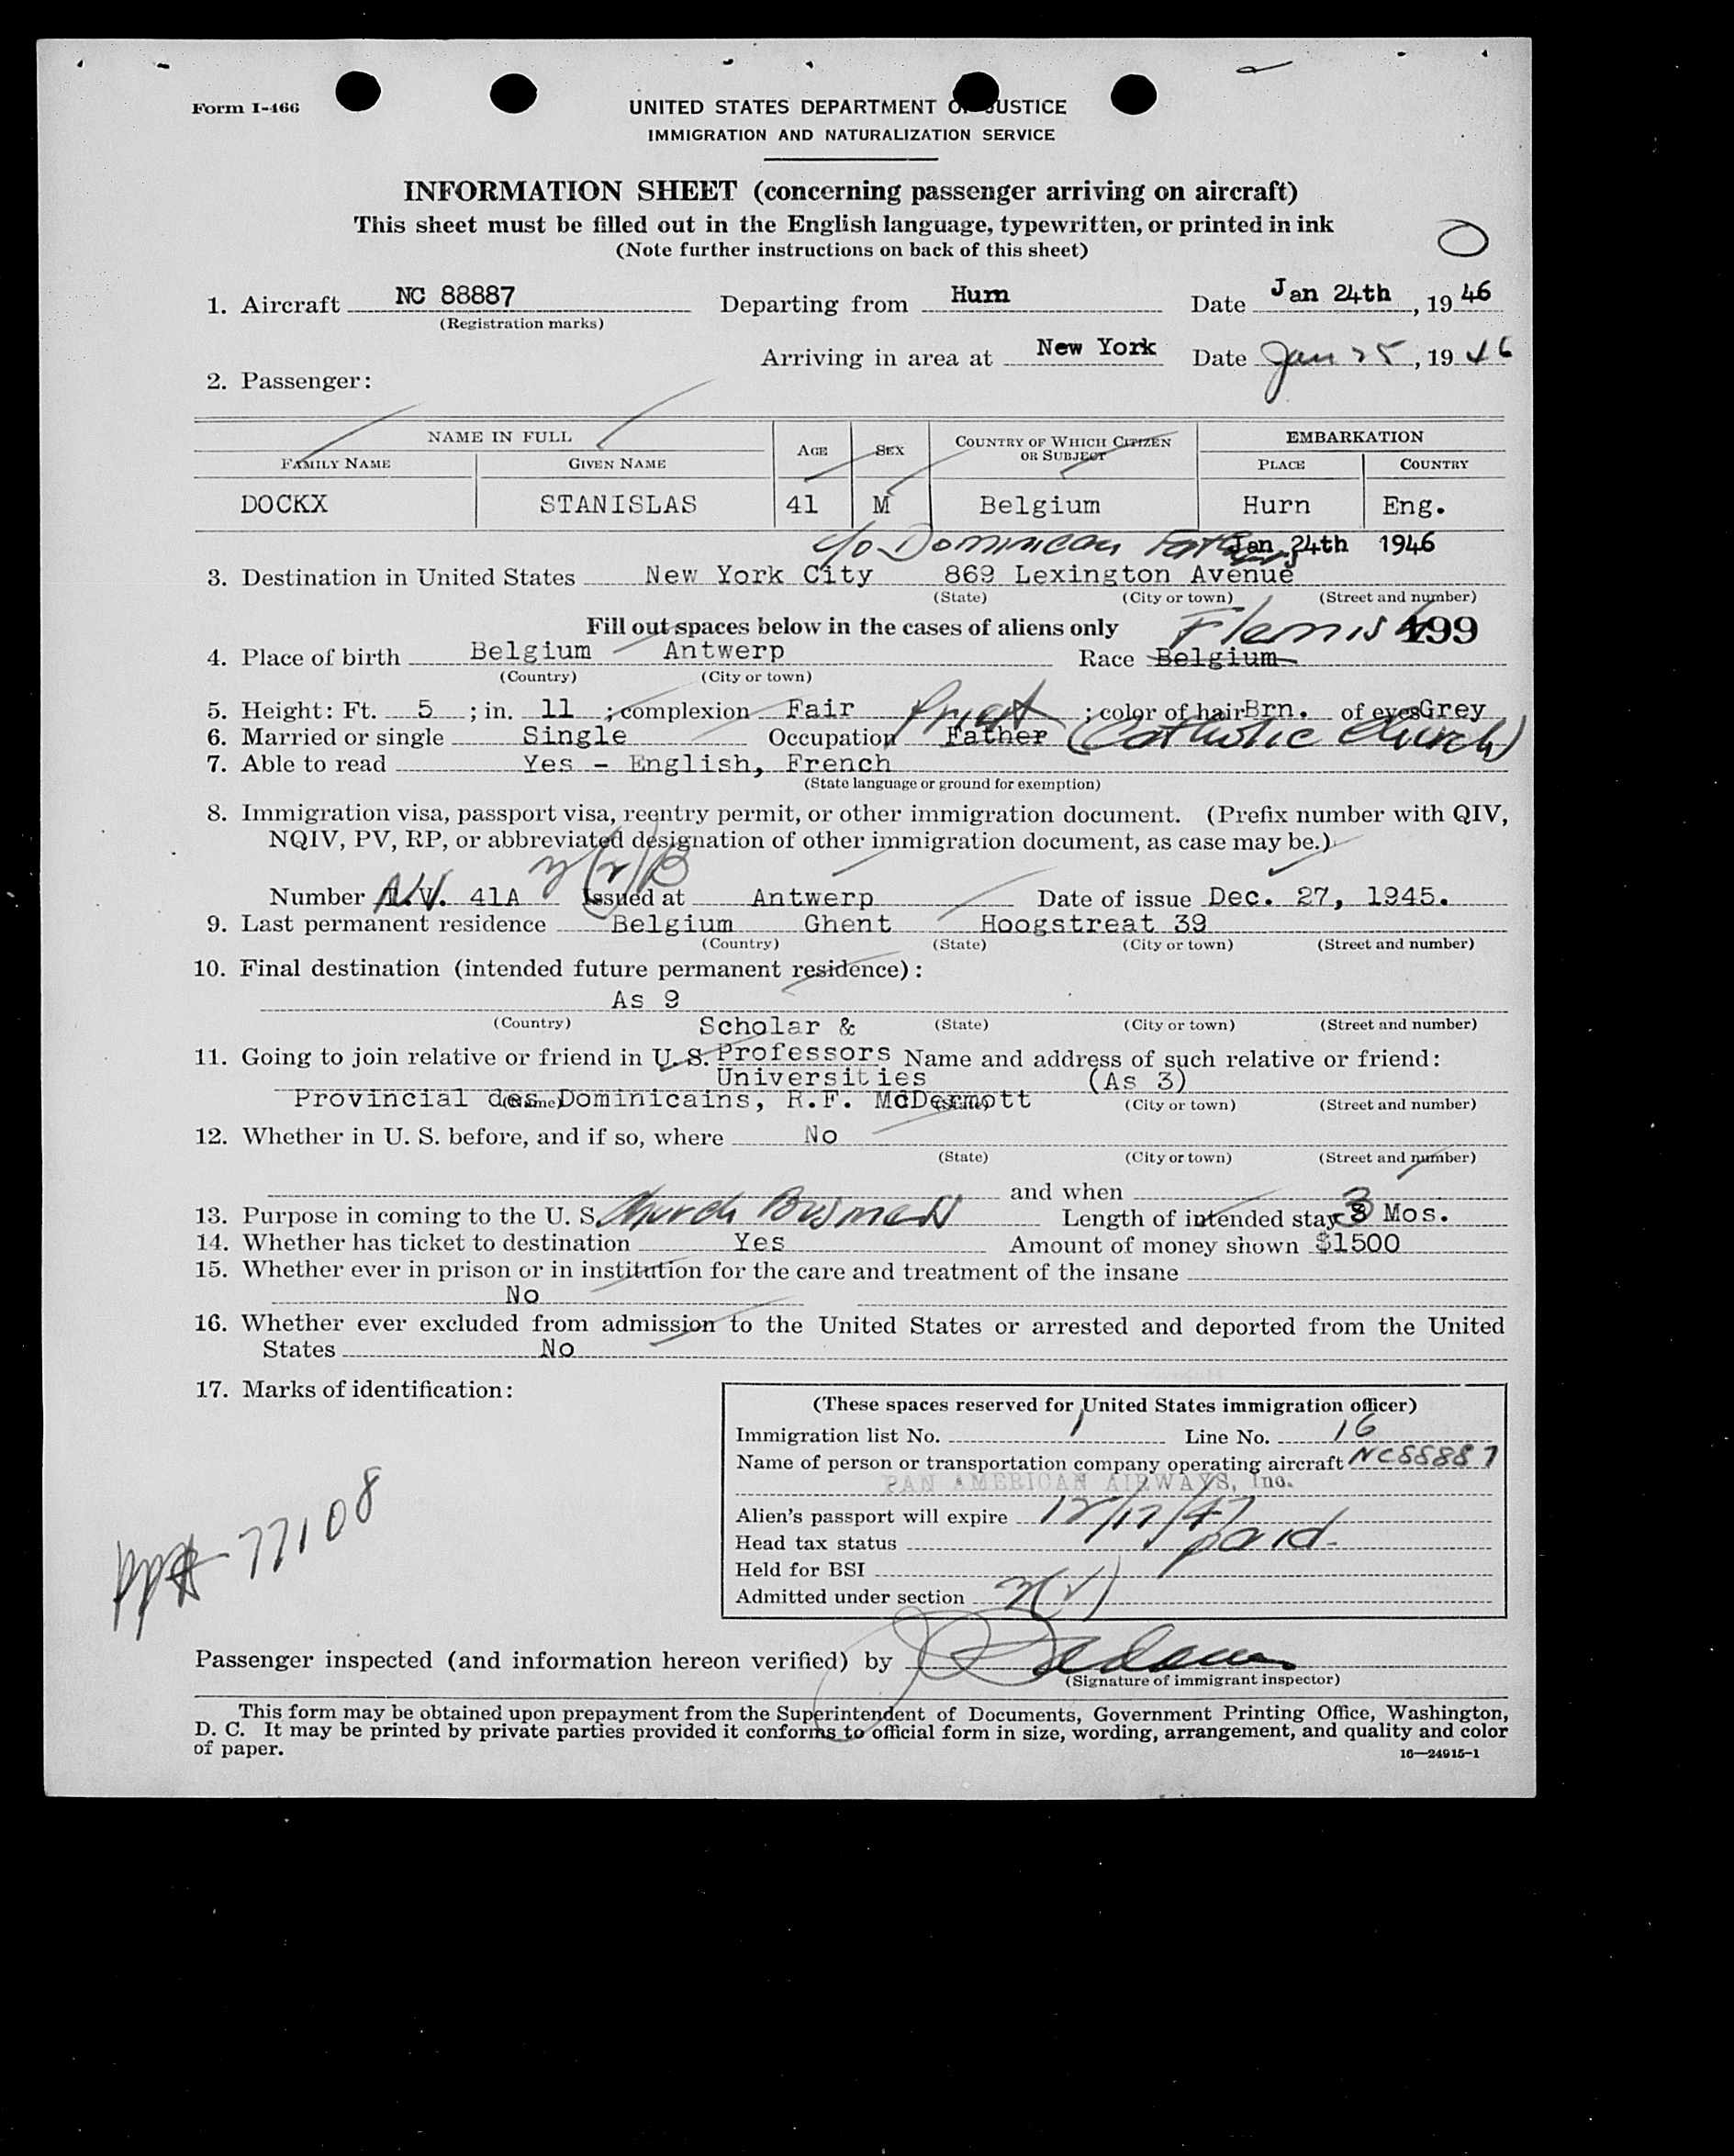 Form I-466
UNITED STATES DEPARTMENT OF JUSTICE
IMMIGRATION AND NATURALIZATION SERVICE
INFORMATION SHEET (concerning passenger arriving on aircraft)
This sheet must be filled out in the English language, typewritten, or printed in ink
(Note further instructions on back of this sheet)
1. Aircraft NC 88887 Departing from Hurn Date Jan 24th, 19 46
(Registration marks)
Arriving in area at New York Date Jan 25, 19 46
2. Passenger:
NAME IN FULL AGE SEX COUNTRY OF WHICH CITIZEN OR SUBJECT EMBARKATION
FAMILY NAME GIVEN NAME PLACE COUNTRY
DOCKX STANISLAS 41 M Belgium Hurn Eng.
c/o Dominican Fathers Jan 24th 1946
3. Destination in United States New York City 869 Lexington Avenue
(State) (City or town) (Street and number)
Fill out spaces below in the cases of aliens only Flemish 499
4. Place of birth Belgium Antwerp Race Belgium
(Country) (City or town)
5. Height: Ft. 5 ; in. 11 ; complexion Fair ; color of hair Brn. of eyes Grey
6. Married or single Single Occupation Father Priest (Catholic Church)
7. Able to read Yes - English, French
(State language or ground for exemption)
8. Immigration visa, passport visa, reentry permit, or other immigration document. (Prefix number with QIV,
NQIV, PV, RP, or abbreviated designation of other immigration document, as case may be.)
3(2)B
Number V. 41A Issued at Antwerp Date of issue Dec. 27, 1945.
9. Last permanent residence Belgium Ghent Hoogstreat 39
(Country) (State) (City or town) (Street and number)
10. Final destination (intended future permanent residence):
As 9
(Country) (State) (City or town) (Street and number)
Scholar &
11. Going to join relative or friend in U. S. Professors Name and address of such relative or friend:
Universities (As 3)
Provincial des Dominicains, R.F. McDermott
(Name) (State) (City or town) (Street and number)
12. Whether in U. S. before, and if so, where No
(State) (City or town) (Street and number)
and when
13. Purpose in coming to the U. S. Church Business Length of intended stay 3 Mos.
14. Whether has ticket to destination Yes Amount of money shown $1500
15. Whether ever in prison or in institution for the care and treatment of the insane
No
16. Whether ever excluded from admission to the United States or arrested and deported from the United
States No
17. Marks of identification:
(These spaces reserved for United States immigration officer)
Immigration list No. 1 Line No. 16
Name of person or transportation company operating aircraft NC88887
PAN AMERICAN AIRWAYS, Inc.
Alien's passport will expire 12/17/47
Head tax status paid
Held for BSI
Admitted under section 3(2)
pp# 77108
Passenger inspected (and information hereon verified) by
(Signature of immigrant inspector)
This form may be obtained upon prepayment from the Superintendent of Documents, Government Printing Office, Washington,
D. C. It may be printed by private parties provided it conforms to official form in size, wording, arrangement, and quality and color
of paper.
16—24915-1